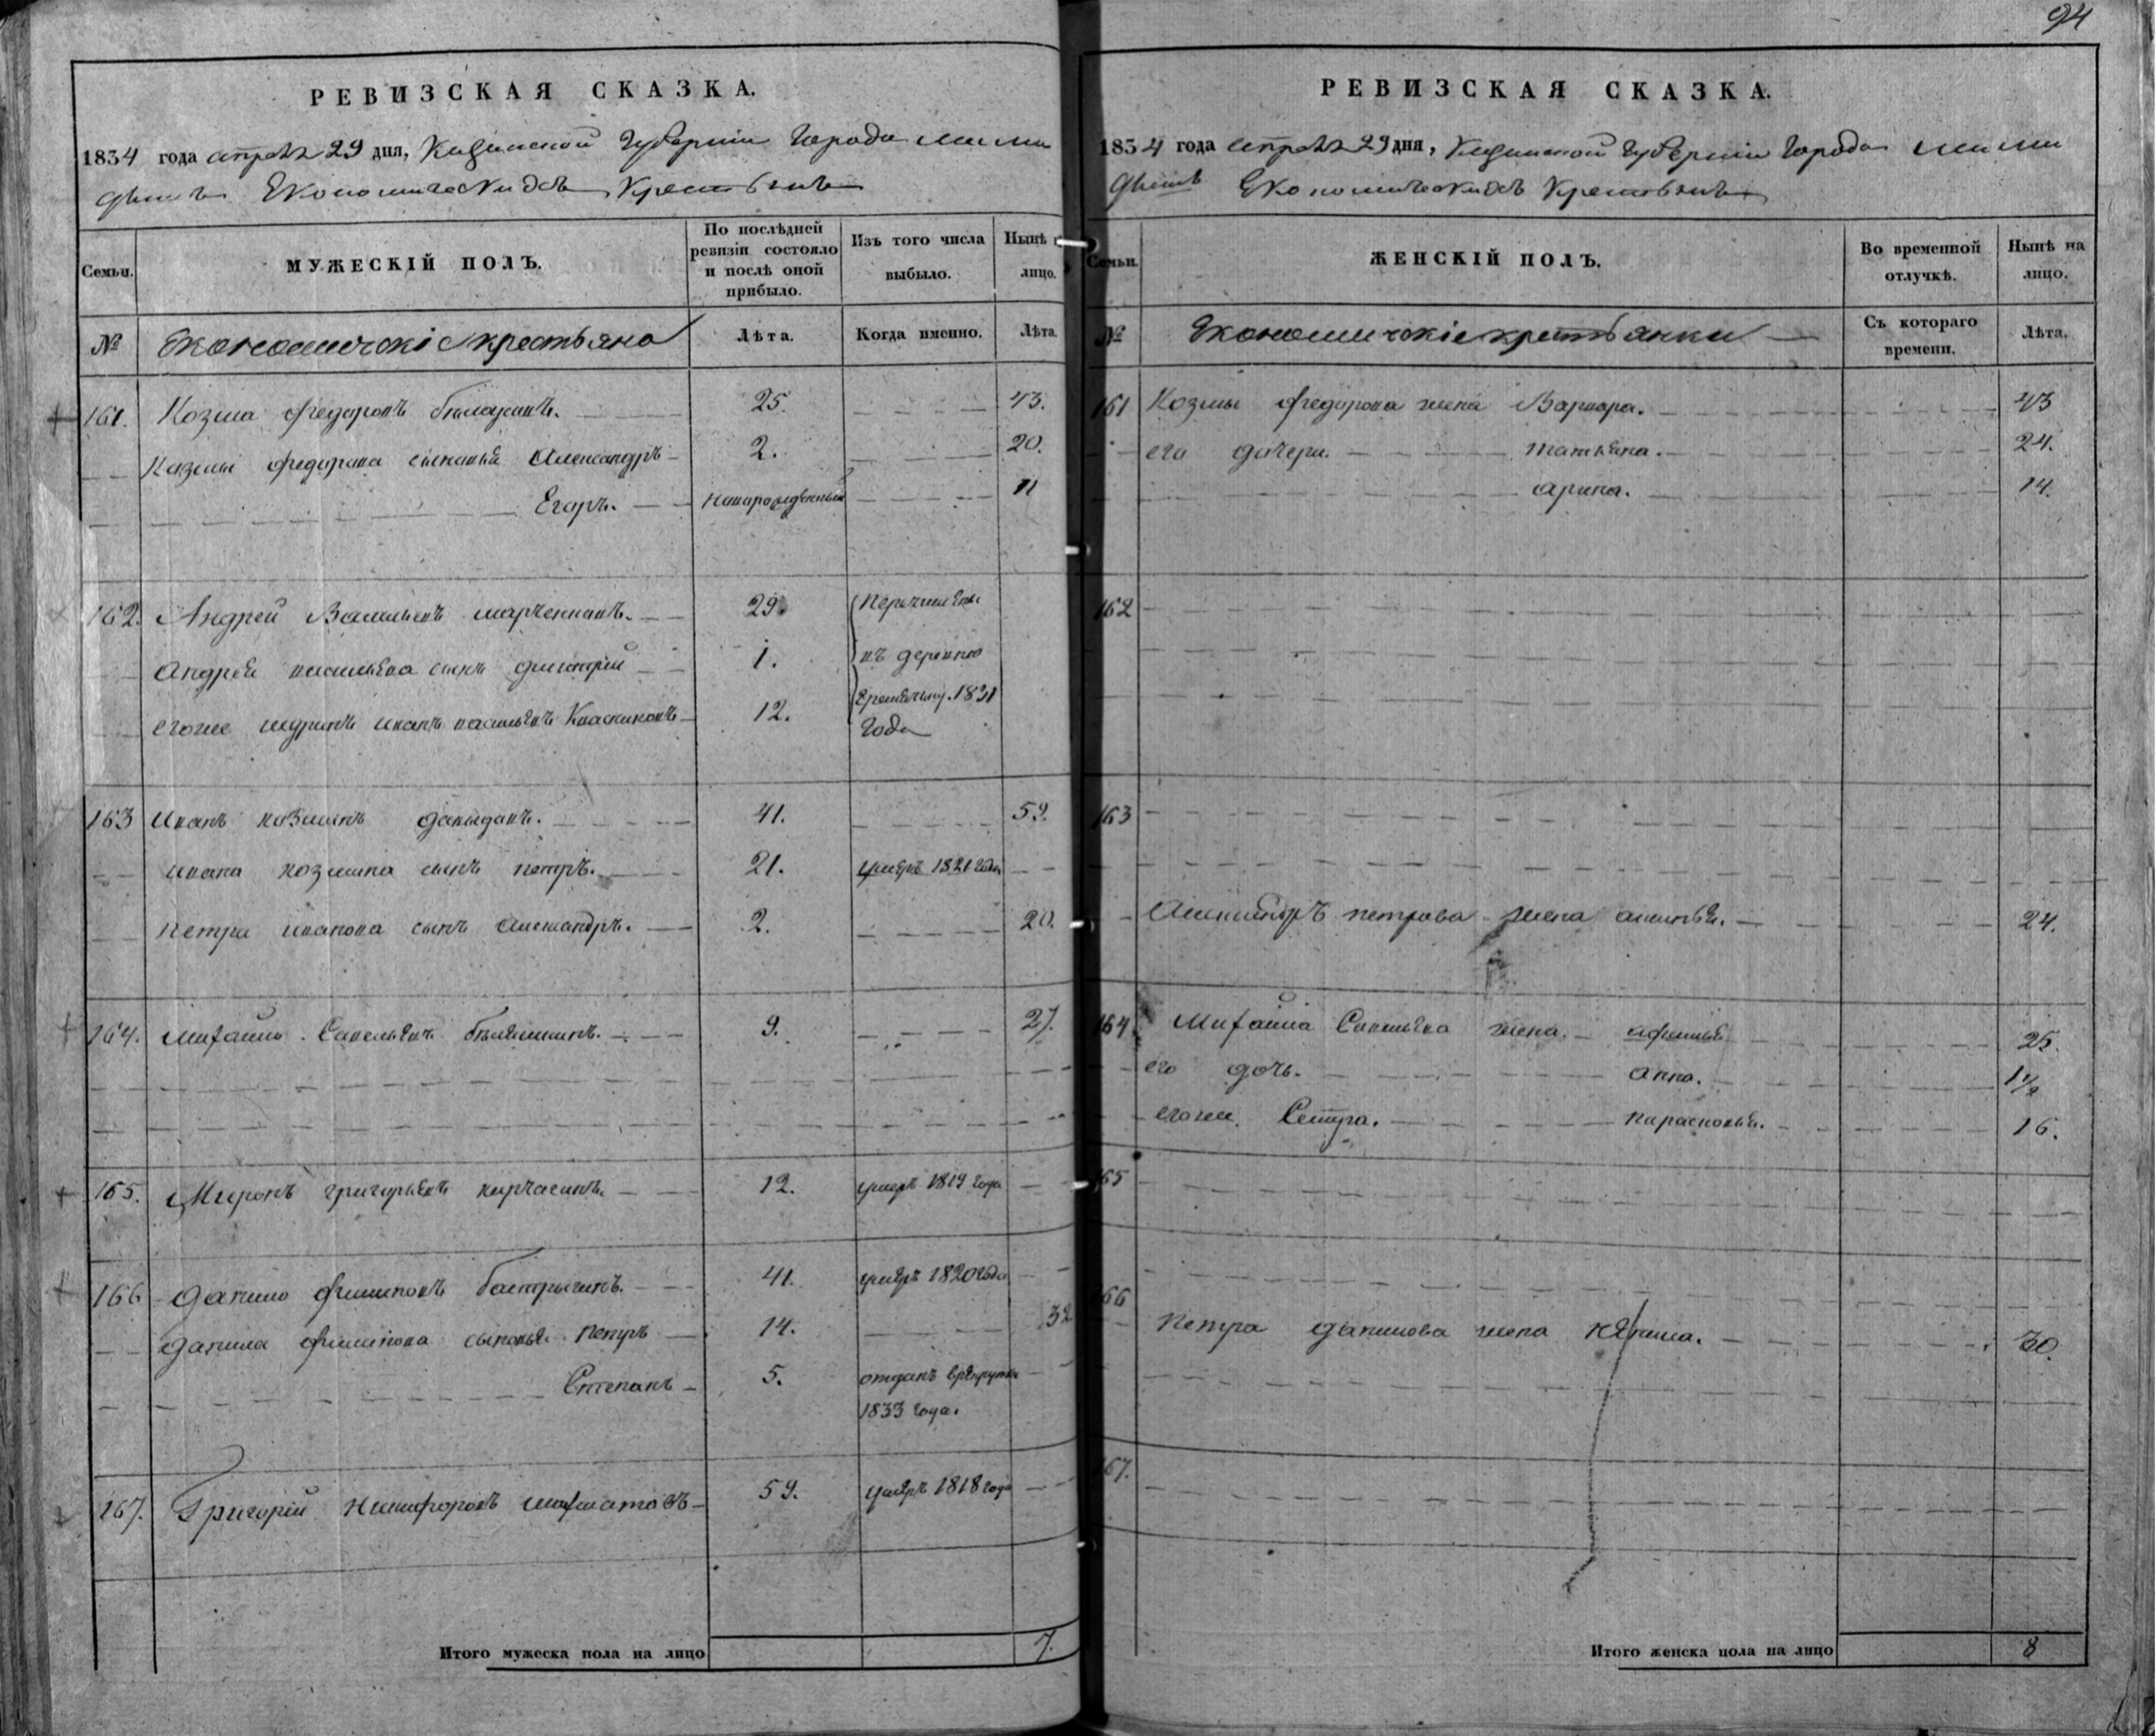 94
РЕВИЗСКАЯ СКАЗКА.
1834 года апреля 29 дня, Казанской Губернии Города Мама
дыша Економическихъ Крестьянъ
Семьи.
МУЖЕСКІЙ ПОЛЪ.
По послѣдней
ревизіи состояло
и послѣ оной
прибыло.
Изъ того числа
выбыло.
Нынѣ
лицо.
№ Економическіе крестьяна Лѣта. Когда именно. Лѣта.
161. Козма Федоровъ 25. 43.
Козмы Федорова сыновья Александръ 2. 20.
Егоръ. новорожденный 11
162. Андрей Васильевъ 29. Перечислены
Андрея васильева сынъ григорий 1. въ деревню
егоже шуринъ иванъ васильевъ 12. 1831
года
163 Иванъ козминъ давыдовъ. 41. 59.
ивана козмина сынъ петръ. 21. умеръ 1821 года
петра иванова сынъ александръ. 2. 20.
164. михайло Савельевъ 9. 27.
165. Миронъ григорьевъ 12. умеръ 1819 года
166 данило филиповъ 41. умеръ 1820 года
данила филипова сыновья Петръ 14. 32
Степанъ 5. отданъ врекруты
1833 года.
167. Григорій никифоровъ 59. умеръ 1818 года
Итого мужеска пола на лицо 7.
РЕВИЗСКАЯ СКАЗКА.
1834 года апреля 29 дня, Казанской Губернии Города Мама
дыша Економическихъ Крестьянъ
Семьи.
ЖЕНСКІЙ ПОЛЪ.
Во временной
отлучкѣ.
Нынѣ на
лицо.
№ Економическіе крестьянки Съ котораго
времени. Лѣта.
161 Козмы Федорова жена Варвара. 43
его дочери. татьяна. 24.
арина. 14.
162
163
Александръ петрова жена 24.
164. Михайла Савельева жена. афимья 25.
его дочь. анна. 1 1/2
егоже Сестра. парасковья. 16.
165
166
Петра данилова жена 30.
167.
Итого женска пола на лицо 8